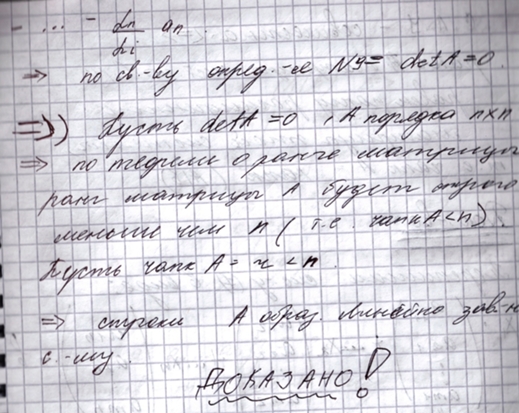 - ... - αn/αi an
⇒ по св.-ву опред.-ля №9= detA=0
⇒) Пусть detA=0, A порядка n×n
⇒ по теореме о ранге матрицы
ранг матрицы A будет строго
меньше чем n (т.е. rank A<n).
Пусть rank A = r < n.
⇒ строки A образ. линейно зав-ю
с.-му.
ДОКАЗАНО!